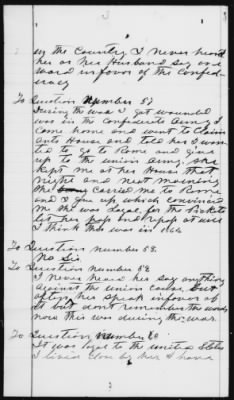 in the Country I never heard
her or her Husband say one
word in favor of the Confed-
eracy
To Question Number 57
During the war I got wounded
was in the Confederate Army I
come home and went to Claim
ants House and told her I wan
ted to go to Rome and give
up to the union army, she
kept me at her House that
night and next morning
she carried me to Rome
and I give up which convinced
me she was Loyal, for the Pickets
let her pass and repass at will
I think this was in 1864
To Question number 58.
No Sir
To Question number 59
I never heard her say anything
against the union cause but
often her speak in favor of
it but dont remember the words
now this was during the war.
To Question, Number 60
It was loyal to the united States
I lived close by her &